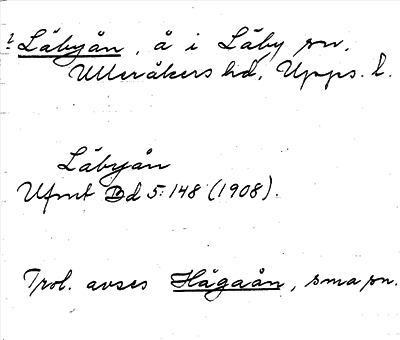 ? Läbyån, å i Läby sn.
Ulleråkers hd, Upps. l.
Läbyån
Ufmt Bd 5:148 (1908).
Trol. avses Hågaån, sma sn.